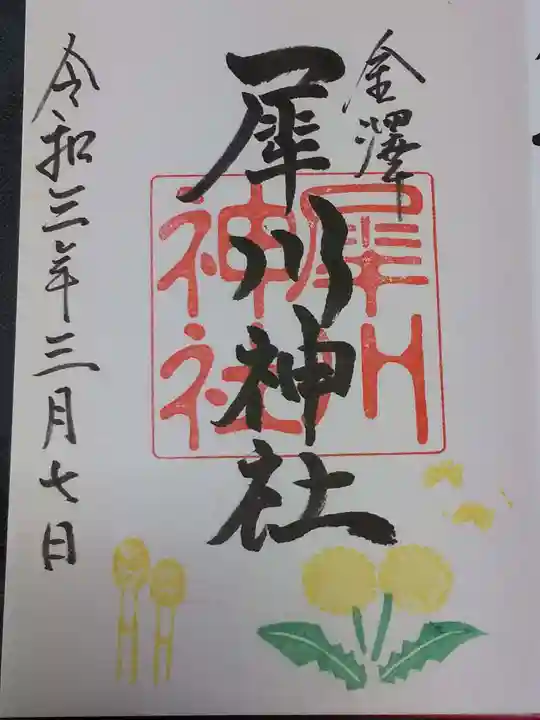 金澤
犀川神社
犀川
神社
令和三年三月七日